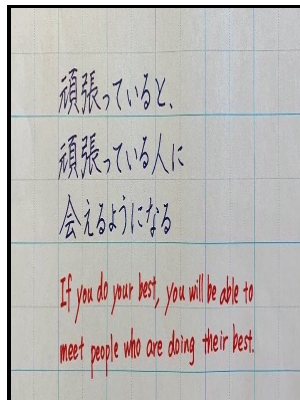 頑張っていると、
頑張っている人に
会えるようになる
If you do your best, you will be able to
meet people who are doing their best.